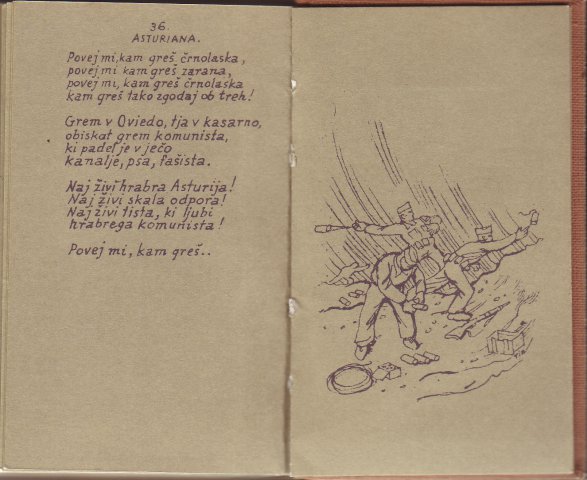 36
ASTURIANA.
Povej mi, kam greš črnolaska,
povej mi kam greš zarana,
povej mi, kam greš črnolaska
kam greš tako zgodaj ob treh!
Grem v Oviedo, tja v kasarno,
obiskat grem komunista,
ki padel je v ječo
kanalje, psa, fašista.
Naj živi hrabra Asturija!
Naj živi skala odpora!
Naj živi tista, ki ljubi
hrabrega komunista!
Povej mi, kam greš..